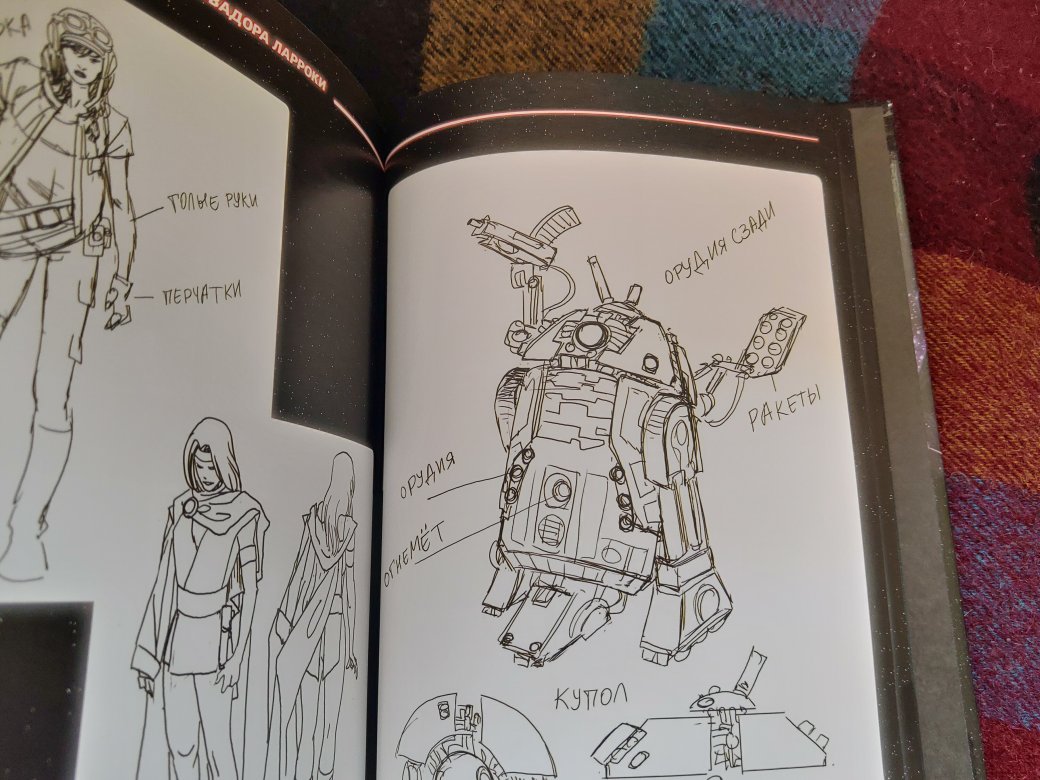 ВАДОРА ЛАРРОКИ
ГОЛЫЕ РУКИ
ПЕРЧАТКИ
ОРУДИЯ СЗАДИ
РАКЕТЫ
ОРУДИЯ
ОГНЕМЁТ
КУПОЛ